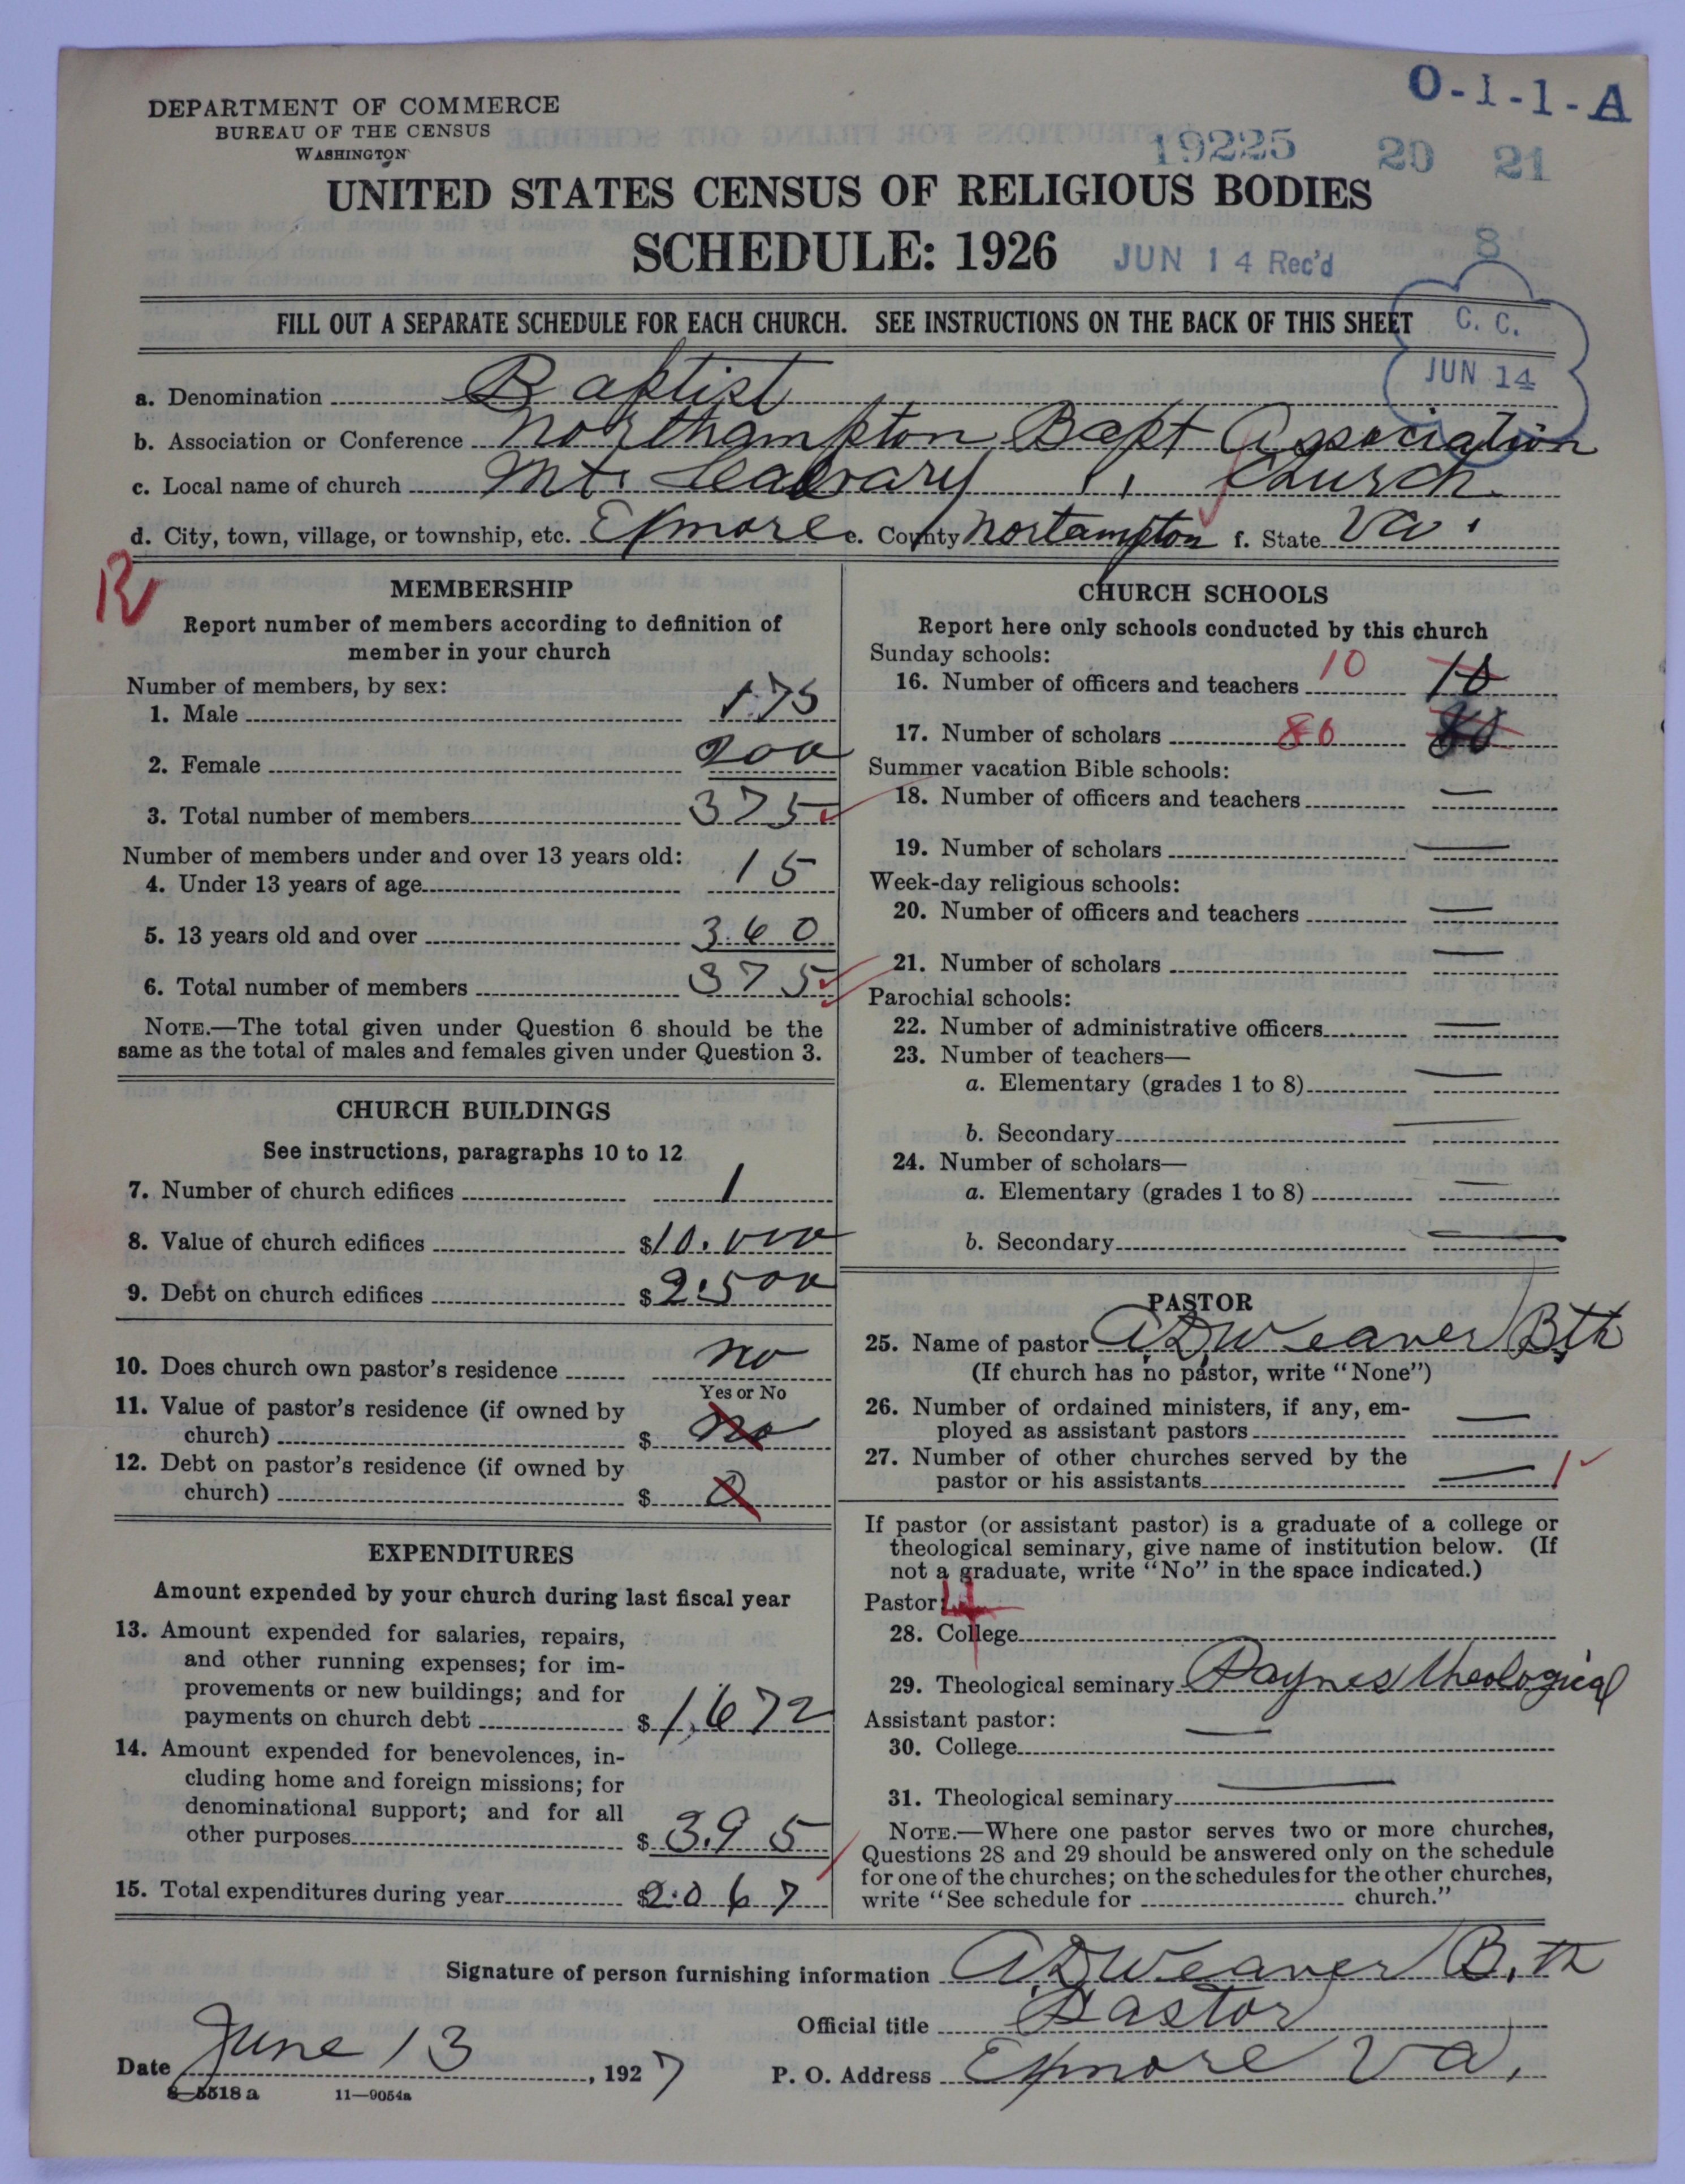 DEPARTMENT OF COMMERCE
BUREAU OF THE CENSUS
WASHINGTON
O-1-1-A
19225 20 21
UNITED STATES CENSUS OF RELIGIOUS BODIES
SCHEDULE: 1926
JUN 14 Rec'd
8
FILL OUT A SEPARATE SCHEDULE FOR EACH CHURCH. SEE INSTRUCTIONS ON THE BACK OF THIS SHEET
C. C.
JUN 14
a. Denomination Baptist
b. Association or Conference Northampton Bapt Association
c. Local name of church Mt. Calvary " Church
d. City, town, village, or township, etc. Exmore e. County Nortampton f. State Va.
MEMBERSHIP
Report number of members according to definition of
member in your church
Number of members, by sex:
1. Male 175
2. Female 200
3. Total number of members 375
Number of members under and over 13 years old:
4. Under 13 years of age 15
5. 13 years old and over 360
6. Total number of members 375
NOTE.—The total given under Question 6 should be the
same as the total of males and females given under Question 3.
CHURCH BUILDINGS
See instructions, paragraphs 10 to 12
7. Number of church edifices 1
8. Value of church edifices $10.000
9. Debt on church edifices $2.500
10. Does church own pastor's residence no
Yes or No
11. Value of pastor's residence (if owned by
church) $ No
12. Debt on pastor's residence (if owned by
church) $ 0
EXPENDITURES
Amount expended by your church during last fiscal year
13. Amount expended for salaries, repairs,
and other running expenses; for im-
provements or new buildings; and for
payments on church debt $1,672
14. Amount expended for benevolences, in-
cluding home and foreign missions; for
denominational support; and for all
other purposes $395
15. Total expenditures during year $2.067
CHURCH SCHOOLS
Report here only schools conducted by this church
Sunday schools:
16. Number of officers and teachers 10 10
17. Number of scholars 80 80
Summer vacation Bible schools:
18. Number of officers and teachers —
19. Number of scholars —
Week-day religious schools:
20. Number of officers and teachers —
21. Number of scholars —
Parochial schools:
22. Number of administrative officers —
23. Number of teachers—
a. Elementary (grades 1 to 8) —
b. Secondary —
24. Number of scholars—
a. Elementary (grades 1 to 8) —
b. Secondary —
PASTOR
25. Name of pastor A.D. Weaver B.th
(If church has no pastor, write "None")
26. Number of ordained ministers, if any, em-
ployed as assistant pastors —
27. Number of other churches served by the
pastor or his assistants — 1
If pastor (or assistant pastor) is a graduate of a college or
theological seminary, give name of institution below. (If
not a graduate, write "No" in the space indicated.)
Pastor: 4
28. College
29. Theological seminary Paynes theological
Assistant pastor:
30. College —
31. Theological seminary —
NOTE.—Where one pastor serves two or more churches,
Questions 28 and 29 should be answered only on the schedule
for one of the churches; on the schedules for the other churches,
write "See schedule for church."
Signature of person furnishing information A.D. Weaver B.th
Official title Pastor
Date June 13, 1927 P. O. Address Exmore Va.
8—5518 a 11—9054a